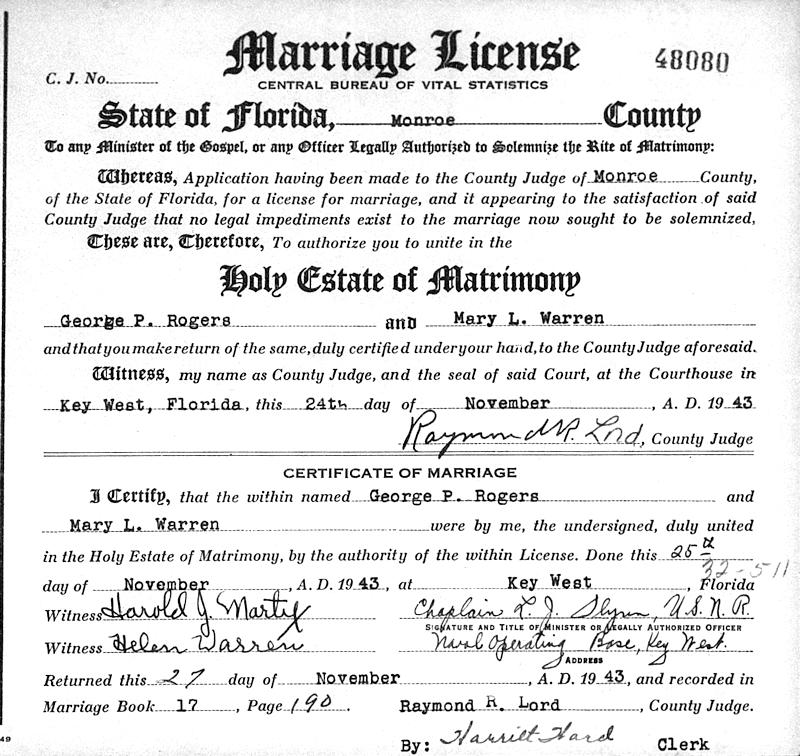 Marriage License
48080
C. J. No.
CENTRAL BUREAU OF VITAL STATISTICS
State of Florida, Monroe County
To any Minister of the Gospel, or any Officer Legally Authorized to Solemnize the Rite of Matrimony:
Whereas, Application having been made to the County Judge of Monroe County,
of the State of Florida, for a license for marriage, and it appearing to the satisfaction of said
County Judge that no legal impediments exist to the marriage now sought to be solemnized,
These are, Therefore, To authorize you to unite in the
Holy Estate of Matrimony
George P. Rogers and Mary L. Warren
and that you make return of the same, duly certified under your hand, to the County Judge aforesaid.
Witness, my name as County Judge, and the seal of said Court, at the Courthouse in
Key West, Florida, this 24th day of November, A. D. 1943
Raymond R. Lord, County Judge
CERTIFICATE OF MARRIAGE
I Certify, that the within named George P. Rogers and
Mary L. Warren were by me, the undersigned, duly united
in the Holy Estate of Matrimony, by the authority of the within License. Done this 25th
32-511
day of November, A. D. 1943, at Key West, Florida
Witness Harold J. Chaplain L. J. Flynn, U.S.N.R.
SIGNATURE AND TITLE OF MINISTER OR LEGALLY AUTHORIZED OFFICER
Witness Helen Warren Naval Operating Base, Key West.
ADDRESS
Returned this 27 day of November, A. D. 1943, and recorded in
Marriage Book 17, Page 190. Raymond R. Lord, County Judge.
By: Harriet Clerk
49